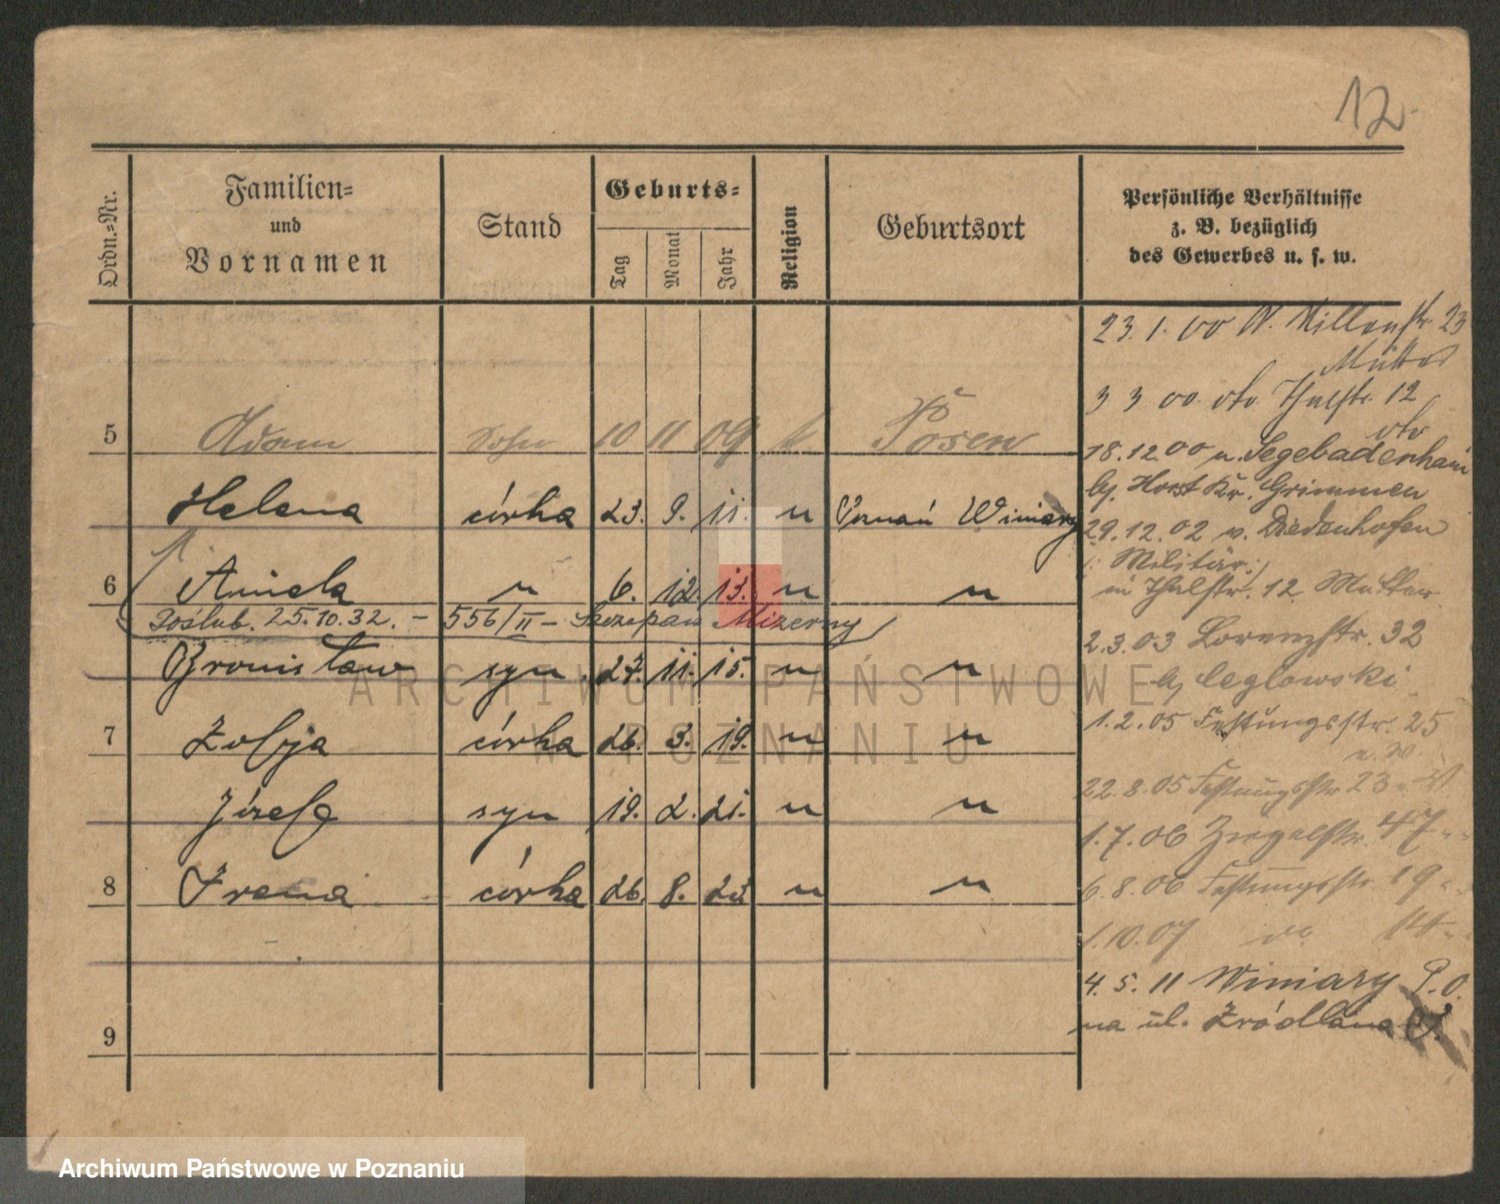 12
Ordn.=Nr.
Familien=
und
Vornamen
Stand
Geburts=
Tag
Monat
Jahr
Religion
Geburtsort
Persönliche Verhältnisse
z. B. bezüglich
des Gewerbes u. s. w.
5 Adam Sohn 10 11 09 k Posen
Helena córka 23. 9. 11. " Poznań Winiary
6 Aniela " 6. 12. 13. " "
Poślub. 25.10.32. – 556/II – Szczepan Mizerny
Bronisław syn 27. 11. 15. " "
7 Zofja córka 26. 3. 19. " "
Józef syn 19. 2. 21. " "
8 Irena córka 26. 8. "
9
23. 1. 00 23
Mutter
3 3 00 dto Thalstr. 12
dto
18.12.00 n. Segebadenhain
b/. Horst Kr. Grimmen
29.12.02 v. Diedenhofen
/: Militär :/
in Thalstr. 12 Mutter
2.3.03 Lorenzstr. 32
b/ Ceglowski
1.2.05 Festungsstr. 25
22.8.05 Festungsstr 23
1.7.06 Ziegelstr. 47
6.8.06 Festungsstr. 19
1.10.07 do 14
4. 5. 11 Winiary P.O.
na ul. Źródlana
ARCHIWUM PAŃSTWOWE
W POZNANIU
Archiwum Państwowe w Poznaniu